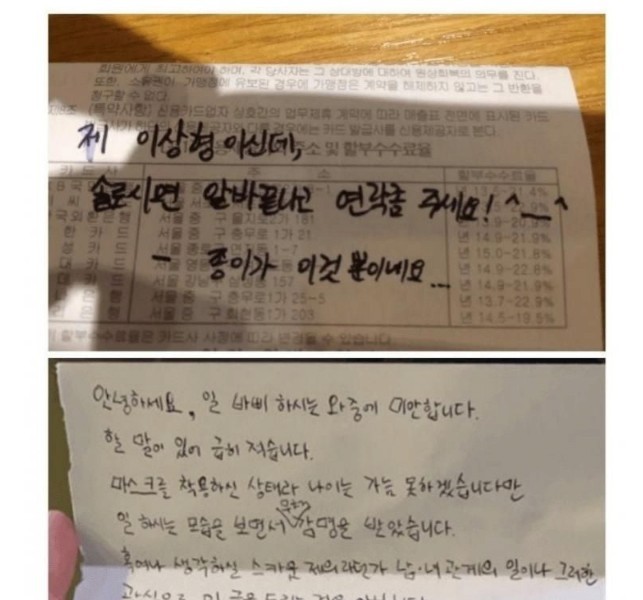 회원에게 최고하여야 하며, 각 당사자는 그 상대방에 대하여 원상회복의 의무를 진다.
또한, 소유권이 가맹점에 유보된 경우에 가맹점은 계약을 해제하지 않고는 그 반환을
청구할 수 없다.
(특약사항) 신용카드업자 상호간의 업무제휴 계약에 따라 매출표 전면에 표시된 카드
경우에는 카드 발급사를 신용제공자로 본다
제 이상형이신데,
주소 및 할부수수료율
카드사
주 소
할부수수료율
솔로시면 알바끝나고 연락좀 주세요! ^__^
국외환은행 서울 중 구 을지로2가 181 년 13.9-20.9%
한 카 드 서울 중 구 충무로 1가 21 년 14.9-21.9%
성 카 드 년 15.0-21.8%
- 종이가 이것 뿐이네요...
대 카 드 년 14.9-22.8%
서울 강남구 157 년 14.9-21.9%
은 행 서울 중 구 충무로1가 25-5 년 13.7-22.9%
은 행 서울 중 구 회현동1가 203 년 14.5-19.5%
할부수수료율은 카드사 사정에 따라 변경될 수 있습니다.
안녕하세요, 일 바삐 하시는 와중에 미안합니다.
할 말이 있어 급히 적습니다.
마스크를 착용하신 상태라 나이는 가늠 못하겠습니다만
일 하시는 모습을 보면서 감명을 받았습니다.
혹여나 생각하실 스카웃 제의라던가 남·녀 관계의 일이나 그러한
관심으로 이 글을 드리는 것은 아닙니다